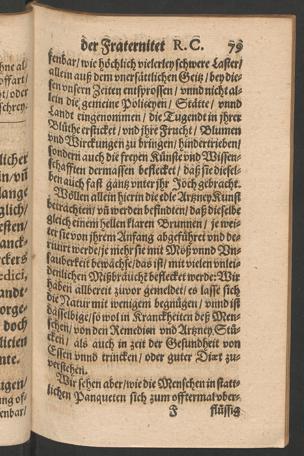 der Fraternitet R. C. 79
fenbar/ wie höchlich vielerley schwere Laster/
allein auß dem vnersättlichen Geitz/ bey die-
sen vnsern Zeiten entsprossen/ vnnd nicht al-
lein die gemeine Policeyen/ Stätte/ vnnd
Landt eingenommen/ die Tugendt in jhrer
Blüthe ersticket/ vnd jhre Frucht/ Blumen
vnd Wirckungen zu bringen/ hindertrieben/
sondern auch die freyen Künste vnd Wissen-
schafften dermassen beflecket/ daß sie diesel-
ben auch fast gantz vnter jhr Joch gebracht.
Wöllen allein hierin die edle Artzney Kunst
betrachten/ vñ werden befindten/ daß dieselbe
gleich einem hellen klaren Brunnen/ je wei-
ter sie von jhrem Anfang abgeführet vnd de-
riuirt worden/ je mehr sie mit Moß vnnd Vn-
sauberkeit bewächse/ das ist/ mit vielen
denlichen Mißbräucht beflecket werde: Wir
haben allbereit zuvor gemeldet/ es lasse sich
die Natur mit wenigem begnügen/ vnnd ist
dasselbige/ so wol in Kranckheiten deß Men-
schen/ von den Remedien vnd Artzney Stü-
cken/ als auch in zeit der Gesundheit von
Essen vnnd trincken/ oder guter Diæt zu-
verstehen.
Wir sehen aber/ wie die Menschen in statt-
lichen Panqueten sich zum offtermal vber-
J flüssig
hne al-
offart/
ht/ oder
schrey-
licher
in/ vñ
lange
glich/
esten/
anck-
ckers
edici,
andt-
orge-
doch
licien
nte.
ugen/
ung of-
enbar/